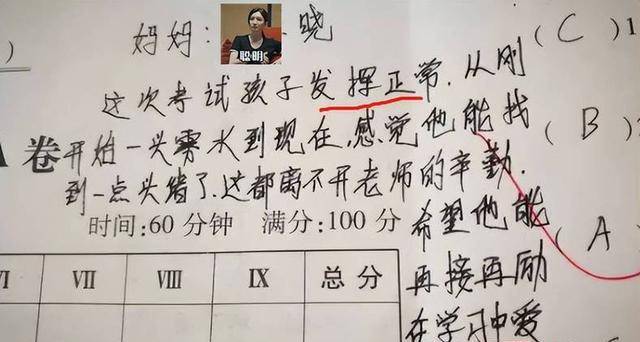 妈妈: 晓
这次考试孩子发挥正常.从刚
开始一头雾水到现在,感觉他能找
到一点头绪了.这都离不开老师的辛勤.
希望他能
再接再励
在学习中爱
卷
时间:60分钟 满分:100分
VI VII VIII IX 总分
(C)1
(B)
(A
聪明